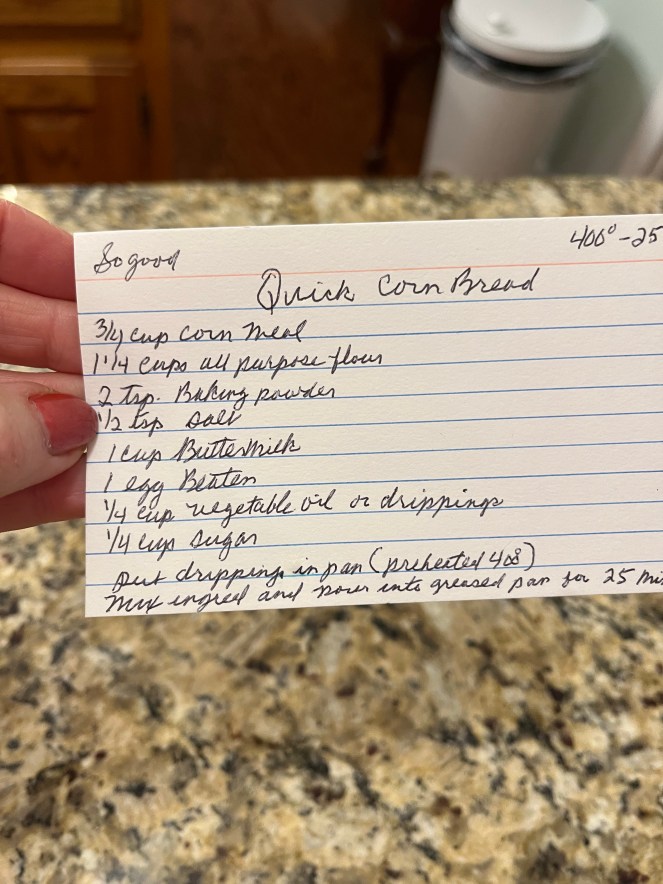 So good
400° - 25
Quick Corn Bread
3/4 cup corn meal
1 1/4 cups all purpose flour
2 tsp. Baking powder
1/2 tsp salt
1 cup Buttermilk
1 egg Beaten
1/4 cup vegetable oil or drippings
1/4 cup sugar
Put drippings in pan (preheated 400°)
Mix ingred and pour into greased pan for 25 min